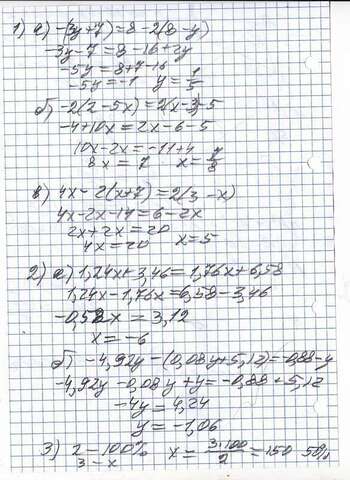 1) а) -(3y+7)=8-2(8-y)
-3y-7=8-16+2y
-5y=8+7-16
-5y=-1 y=1/5
б) -2(2-5x)=2(x-3)-5
-4+10x=2x-6-5
10x-2x=-11+4
8x=7 x=7/8
в) 4x-2(x+7)=2(3-x)
4x-2x-14=6-2x
2x+2x=20
4x=20 x=5
2) а) 1,24x+3,46=1,76x+6,58
1,24x-1,76x=6,58-3,46
-0,52x=3,12
x=-6
б) -4,92y-(0,08y+5,12)=-0,88-y
-4,92y-0,08y+y=-0,88+5,12
-4y=4,24
y=-1,06
3) 2-100%
3-x x=3·100/2=150 50%